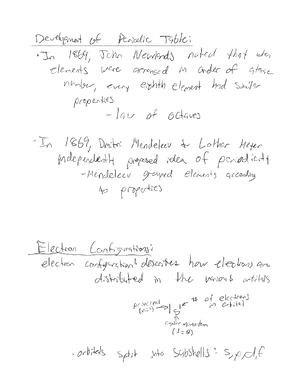 Development of Periodic Table:
· In 1864, John Newlands noted that when
elements were arranged in order of atomic
number, every eighth element had similar
properties
- law of octaves
· In 1869, Dmitri Mendeleev & Lothar Meyer
independently proposed idea of periodicity
- Mendeleev grouped elements according
to properties
Electron Configurations:
electron configuration: describes how electrons are
distributed in the various orbitals
principal
(n=1)
1s¹
# of electrons
in orbital
angular momentum
(l=0)
· orbitals split into subshells: s, p, d, f